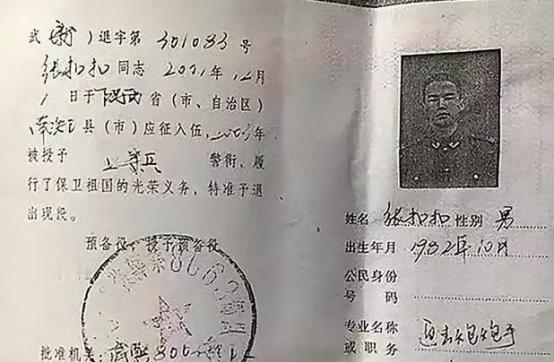 武 ) 退字第 301083 号
张扣扣同志2001年12月
1日于陕西省(市、自治区)
县(市)应征入伍,2003年
被授予 上等兵 警衔,履
行了保卫祖国的光荣义务,特准予退
出现役。
预备役:授予预备役
批准机关
姓名 张扣扣 性别 男
出生年月 1982年10月
公民身份
号码
专业名称
或职务 迫击炮炮手